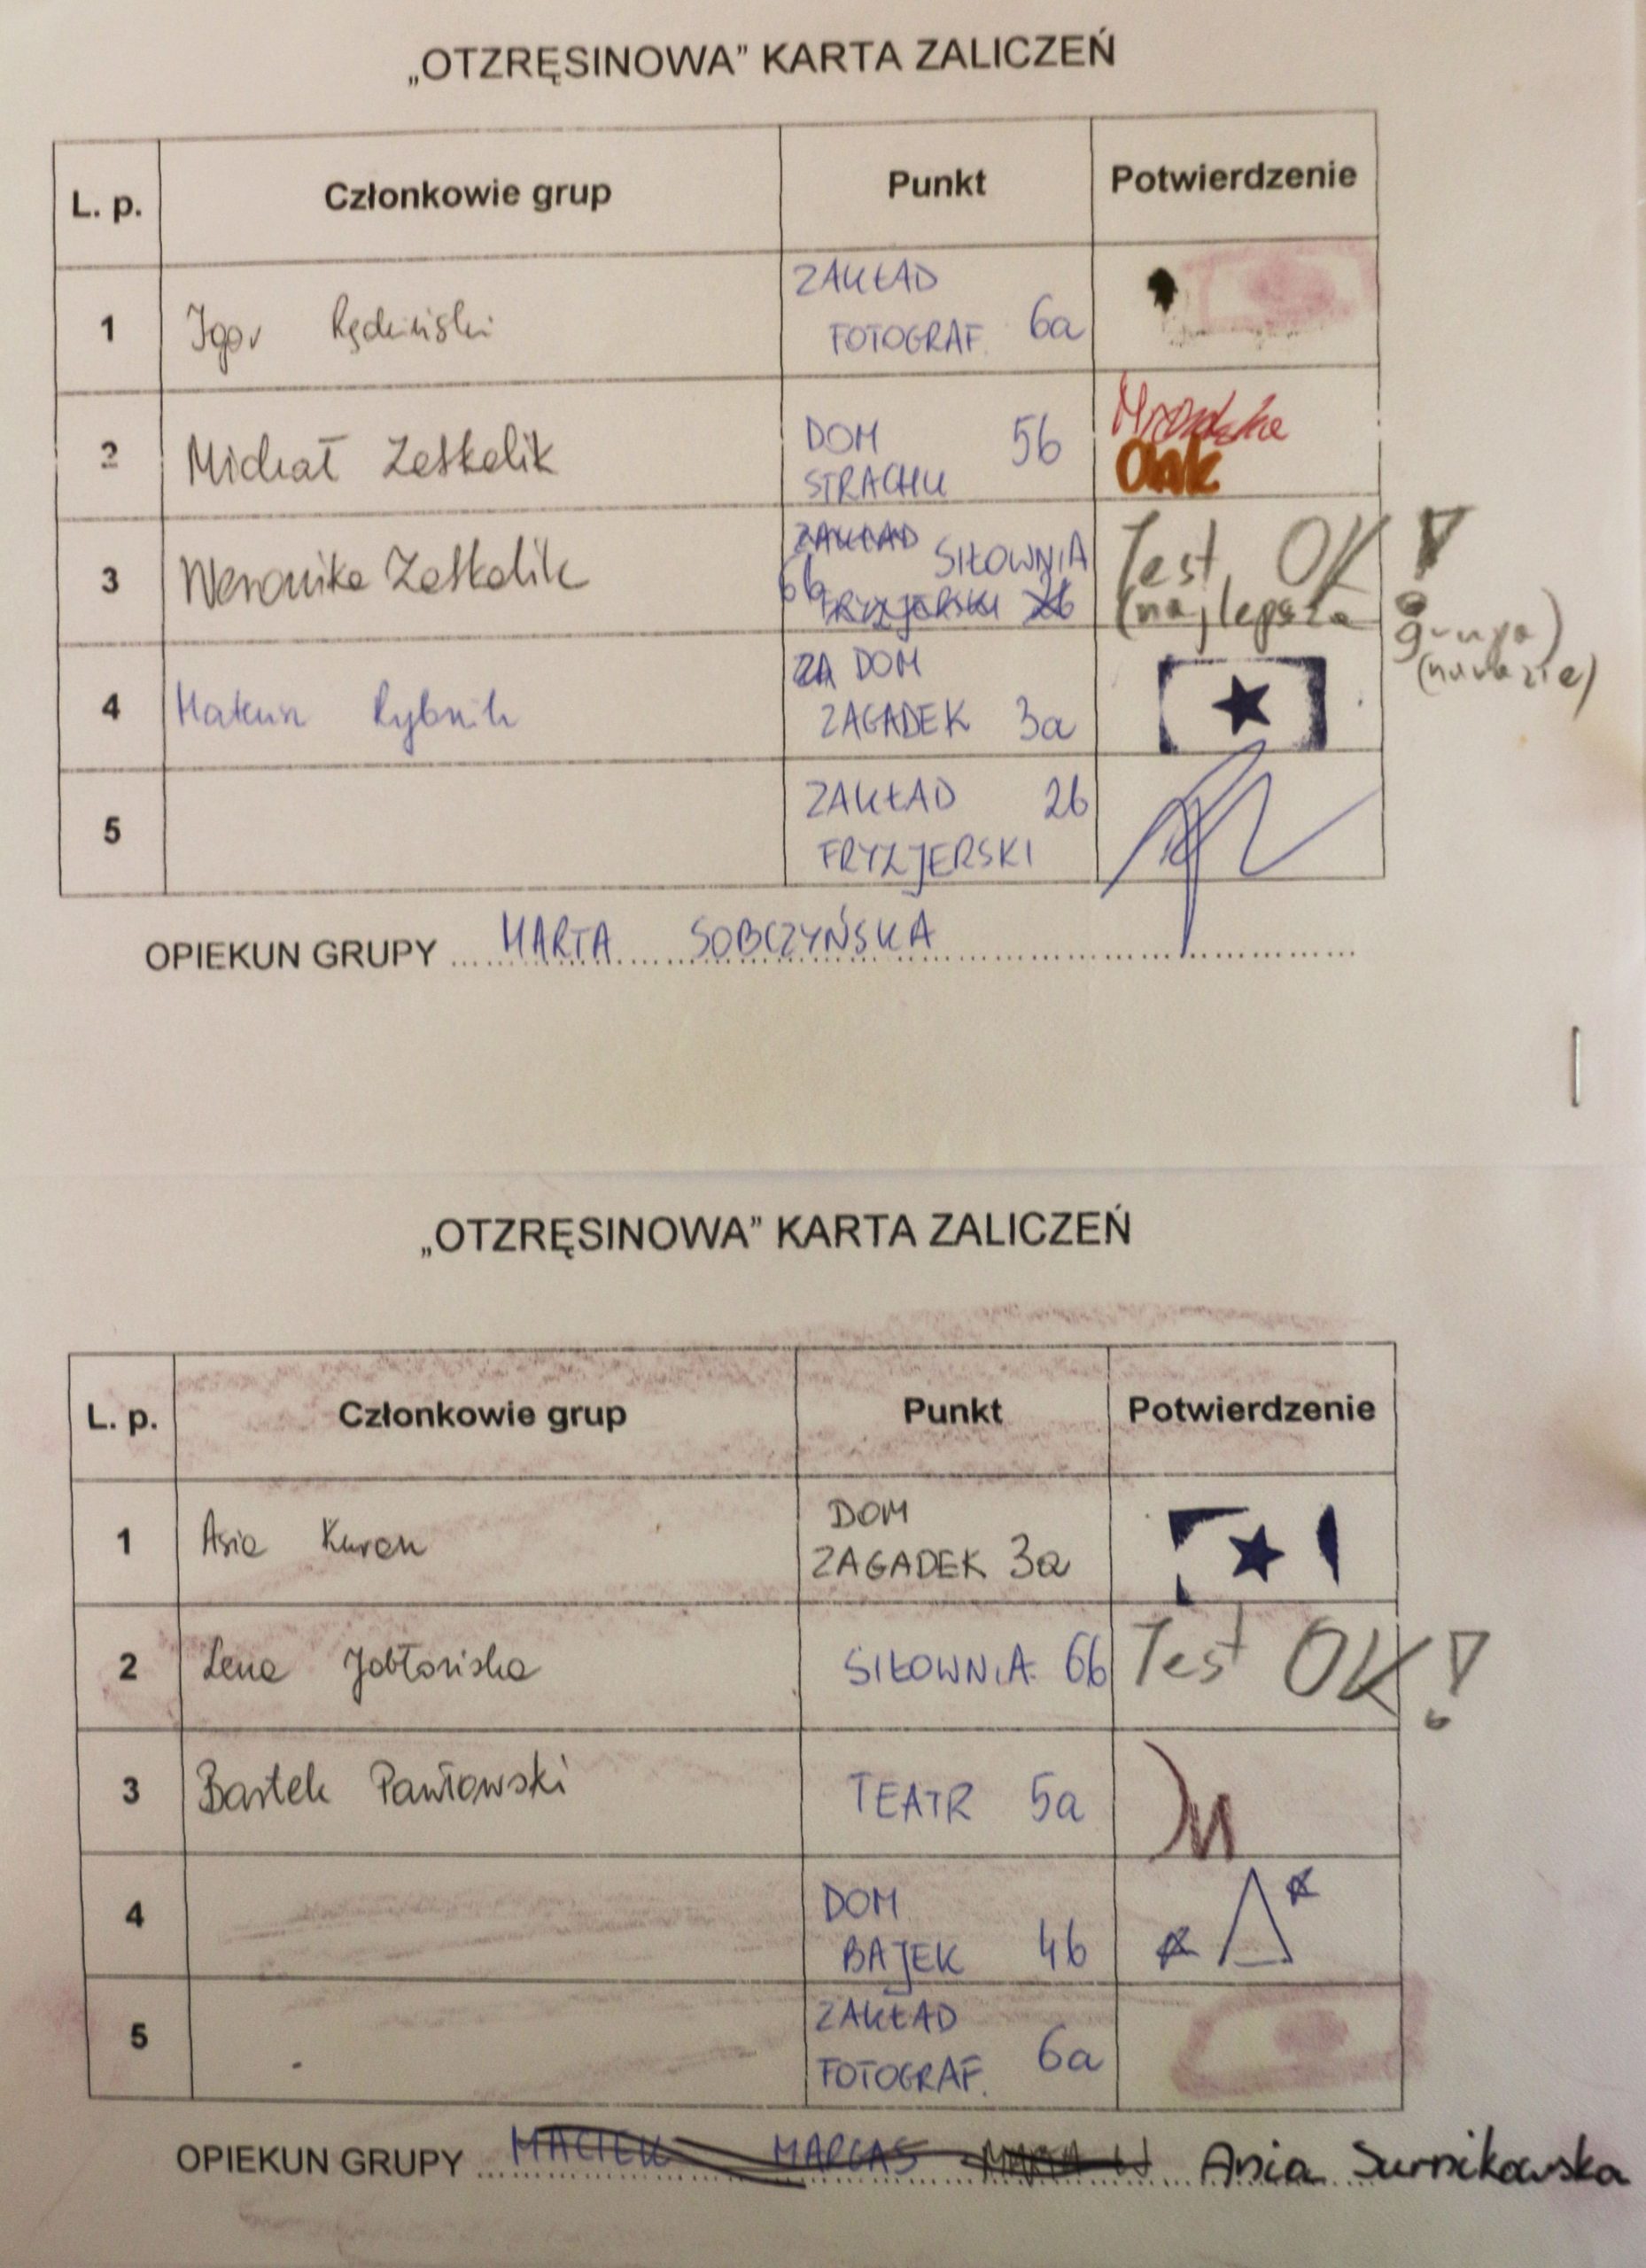 „OTZRĘSINOWA” KARTA ZALICZEŃ
L. p. Członkowie grup Punkt Potwierdzenie
1 Igor ZAKŁAD
FOTOGRAF. 6a
2 Michał Zeskalik DOM 5b
STRACHU
3 Weronika Zeskalik ZAKŁAD SIŁOWNIA Test OK!
6b FRYZJERSKI 2b (najlepsza grupa)
(narazie)
4 Mateusz Rybnik ZA DOM
ZAGADEK 3a
5 ZAKŁAD 2b
FRYZJERSKI
OPIEKUN GRUPY MARTA SOBCZYŃSKA
„OTZRĘSINOWA” KARTA ZALICZEŃ
L. p. Członkowie grup Punkt Potwierdzenie
1 Asia Kuren DOM
ZAGADEK 3a
2 Lena Jabłońska SIŁOWNIA 6b Test OK!
3 Bartek Pawłowski TEATR 5a
4 DOM
BAJEK 4b
5 ZAKŁAD
FOTOGRAF. 6a
OPIEKUN GRUPY MACIEK MARGAS Ania Surnikowska